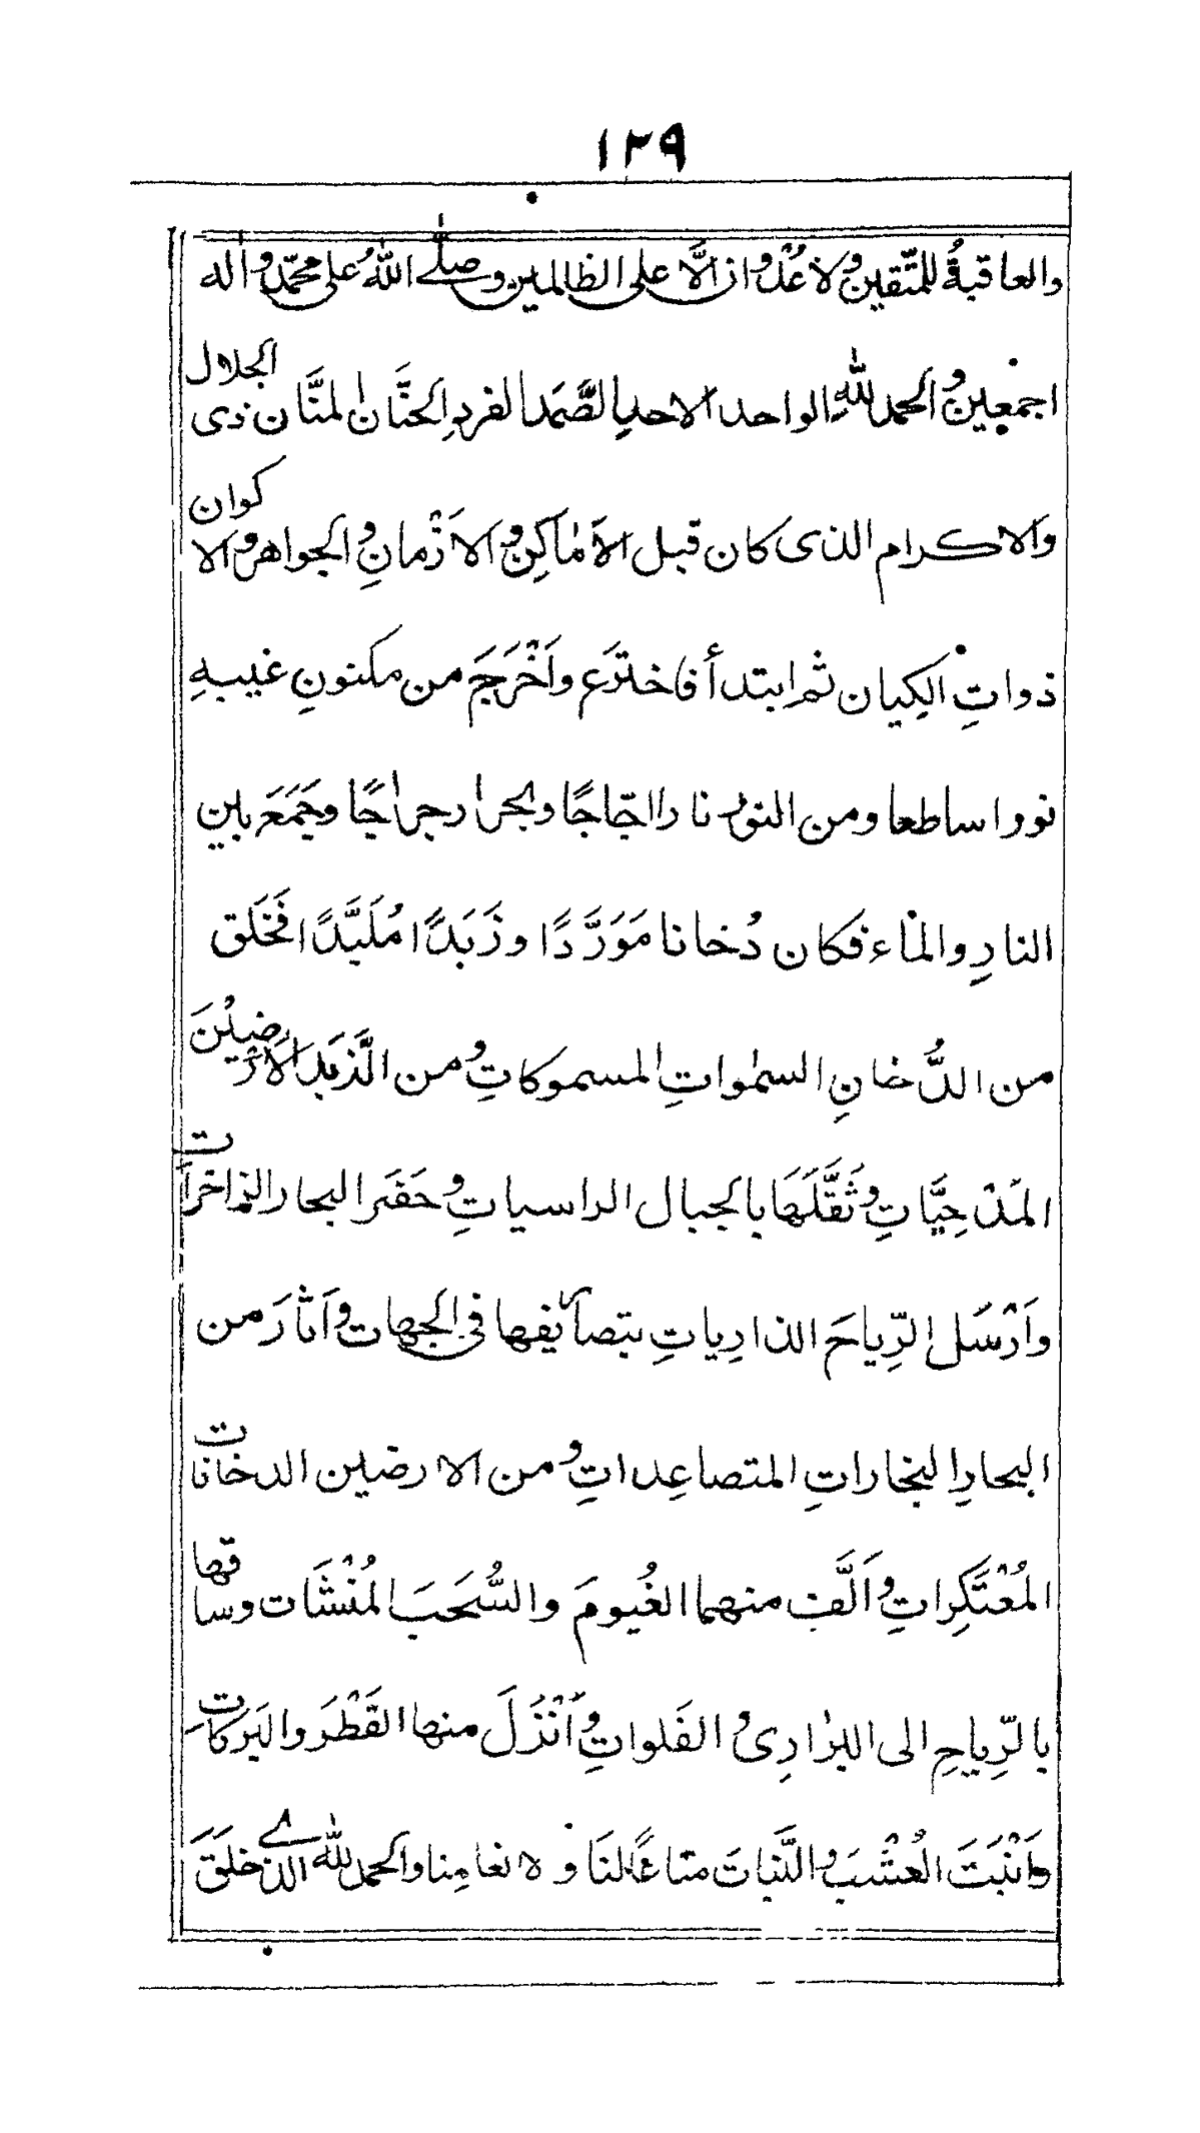 ١٢٩
والعاقبةُ للمتّقين ولا عُدْوان الّا على الظالمين وصلّى اللهُ على محمّد واٰله
اجمعين والحمد للهِ الواحد الاحدِ الصَّمَد الفردِ الحنَّان المنَّان ذى الجلال
والاكرام الذى كان قبل الاَماكِنِ والازْمانِ والجواهر والاكوان
ذواتِ الكِيان ثم ابتدأ فاخترَع واَخْرَجَ من مكنونِ غيبهِ
نورا ساطعا ومن النور نارا اجّاجًا وبحرا رجراجًا وجَمَعَ بين
النارِ والماء فكان دُخانا مَوَرَّدًا وزَبَدًا مُلَبَّدًا فَخَلَق
من الدُّخانِ السمٰواتِ المسموكاتِ ومن الزَّبَد الاَرَضِيْنَ
المَدْحِيَّاتِ وثَقَّلَهَا بالجبال الراسياتِ وحَفَر البحار الزاخرات
واَرْسَل الرِّياحَ الذارِياتِ بتصاريفها فى الجهات واَثارَ من
البحارِ البخاراتِ المتصاعِداتِ ومن الارضين الدخانات
المُعْتَكِراتِ واَلَّف منهما الغُيومَ والسُّحَبَ المُنْشَات وساقها
بالرِّياحِ الى البرارِى والفَلواتِ واَنْزَلَ منها القَطْرَ والبَركات
واَنْبَتَ العُشْبَ والنَّباتَ متاعًا لنَا ولانعامِنا والحمد للهِ الذى خلَقَ